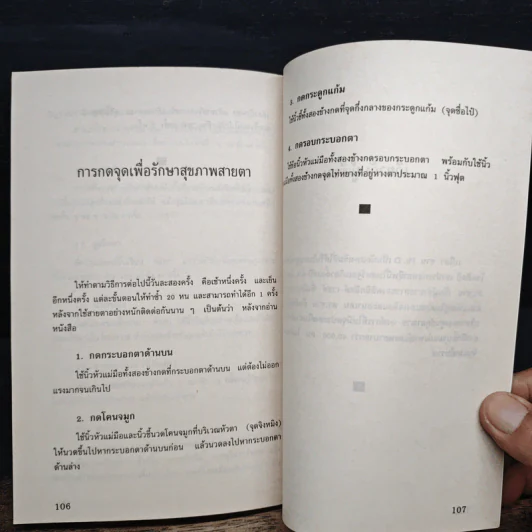 การกดจุดเพื่อรักษาสุขภาพสายตา
ให้ทำตามวิธีการต่อไปนี้วันละสองครั้ง คือเช้าหนึ่งครั้ง และเย็น
อีกหนึ่งครั้ง แต่ละขั้นตอนให้ทำซ้ำ 20 หน และสามารถทำได้อีก 1 ครั้ง
หลังจากใช้สายตาอย่างหนักติดต่อกันนาน ๆ เป็นต้นว่า หลังจากอ่าน
หนังสือ
1. กดกระบอกตาด้านบน
ใช้นิ้วหัวแม่มือทั้งสองข้างกดที่กระบอกตาด้านบน แต่ต้องไม่ออก
แรงมากจนเกินไป
2. กดโคนจมูก
ใช้นิ้วหัวแม่มือและนิ้วชี้นวดโคนจมูกที่บริเวณหัวตา (จุดจิงหมิง)
ให้นวดขึ้นไปหากระบอกตาด้านบนก่อน แล้วนวดลงไปหากระบอกตา
ด้านล่าง
106
3. กดกระดูกแก้ม
ใช้นิ้วชี้ทั้งสองข้างกดที่จุดกึ่งกลางของกระดูกแก้ม (จุดซื่อไป๋)
4. กดรอบกระบอกตา
ใช้นิ้วหัวแม่มือทั้งสองข้างกดรอบกระบอกตา พร้อมกับใช้นิ้ว
ทั้งสองข้างกดจุดไท่หยางที่อยู่หางตาประมาณ 1 นิ้วฟุต
107